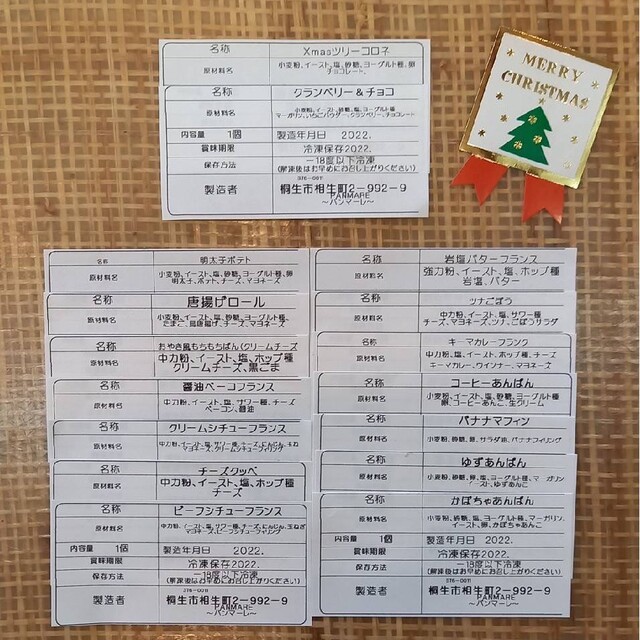 名称 Xmasツリーコロネ
原材料名 小麦粉、イースト、塩、砂糖、ヨーグルト種、卵
チョコレート、
名称 クランベリー＆チョコ
原材料名 小麦粉、イースト、塩、砂糖、ヨーグルト種
マーガリン、いちごパウダー、クランベリー、チョコレート
内容量 1個 製造年月日 2022.
賞味期限 冷凍保存2022.
保存方法 −18度以下冷凍
(解凍後はお早めにお召し上がりください)
376-0011
製造者 桐生市相生町2-992-9
PANMARE
～パンマーレ～
MERRY
CHRISTMAS
名称 明太子ポテト
原材料名 小麦粉、イースト、塩、砂糖、ヨーグルト種、卵
明太子、ポテト、チーズ、マヨネーズ
名称 唐揚ピロール
原材料名 小麦粉、イースト、塩、砂糖、ヨーグルト種、
たまご、鳥唐揚げ、チーズ、マヨネーズ
名称 おやき風もちもちぱん(クリームチーズ
原材料名 中力粉、イースト、塩、ホップ種
クリームチーズ、黒ごま
名称 醤油ベーコンフランス
原材料名 中力粉、イースト、塩、サワー種、チーズ
ベーコン、醤油
名称 クリームシチューフランス
原材料名 中力粉、イースト、塩、サワー種、チーズ、にんじん、玉ね
マヨネーズ、クリームシチューフィリング
名称 チーズクッペ
原材料名 中力粉、イースト、塩、ホップ種
チーズ
名称 ビーフシチューフランス
原材料名 中力粉、イースト、塩、サワー種、チーズ、にんじん、玉ねぎ
マヨネーズ、ビーフシチューフィリング
内容量 1個 製造年月日 2022.
賞味期限 冷凍保存2022.
保存方法 −18度以下冷凍
(解凍後はお早めにお召し上がりください)
376-0011
製造者 桐生市相生町2-992-9
PANMARE
～パンマーレ～
名称 岩塩バターフランス
原材料名 強力粉、イースト、塩、ホップ種
岩塩、バター
名称 ツナごぼう
原材料名 中力粉、イースト、塩、サワー種
チーズ、マヨネーズ、ツナ、ごぼうサラダ
名称 キーマカレーフランク
原材料名 中力粉、イースト、塩、ホップ種、チーズ
キーマカレー、ウインナー、マヨネーズ
名称 コーヒーあんぱん
原材料名 小麦粉、イースト、塩、砂糖、ヨーグルト種
卵、コーヒーあんこ、生クリーム
名称 バナナマフィン
原材料名 小麦粉、砂糖、卵、サラダ油、バナナフィリング
名称 ゆずあんぱん
原材料名 小麦粉、砂糖、卵、塩、ヨーグルト種、マーガリン
イースト、ゆずあんこ
名称 かぼちゃあんぱん
原材料名 小麦粉、砂糖、塩、ヨーグルト種、マーガリン、
イースト、卵、かぼちゃあんこ
内容量 1個 製造年月日 2022.
賞味期限 冷凍保存2022.
保存方法 −18度以下冷凍
(解凍後はお早めにお召し上がりください)
376-0011
製造者 桐生市相生町2-992-9
PANMARE
～パンマーレ～